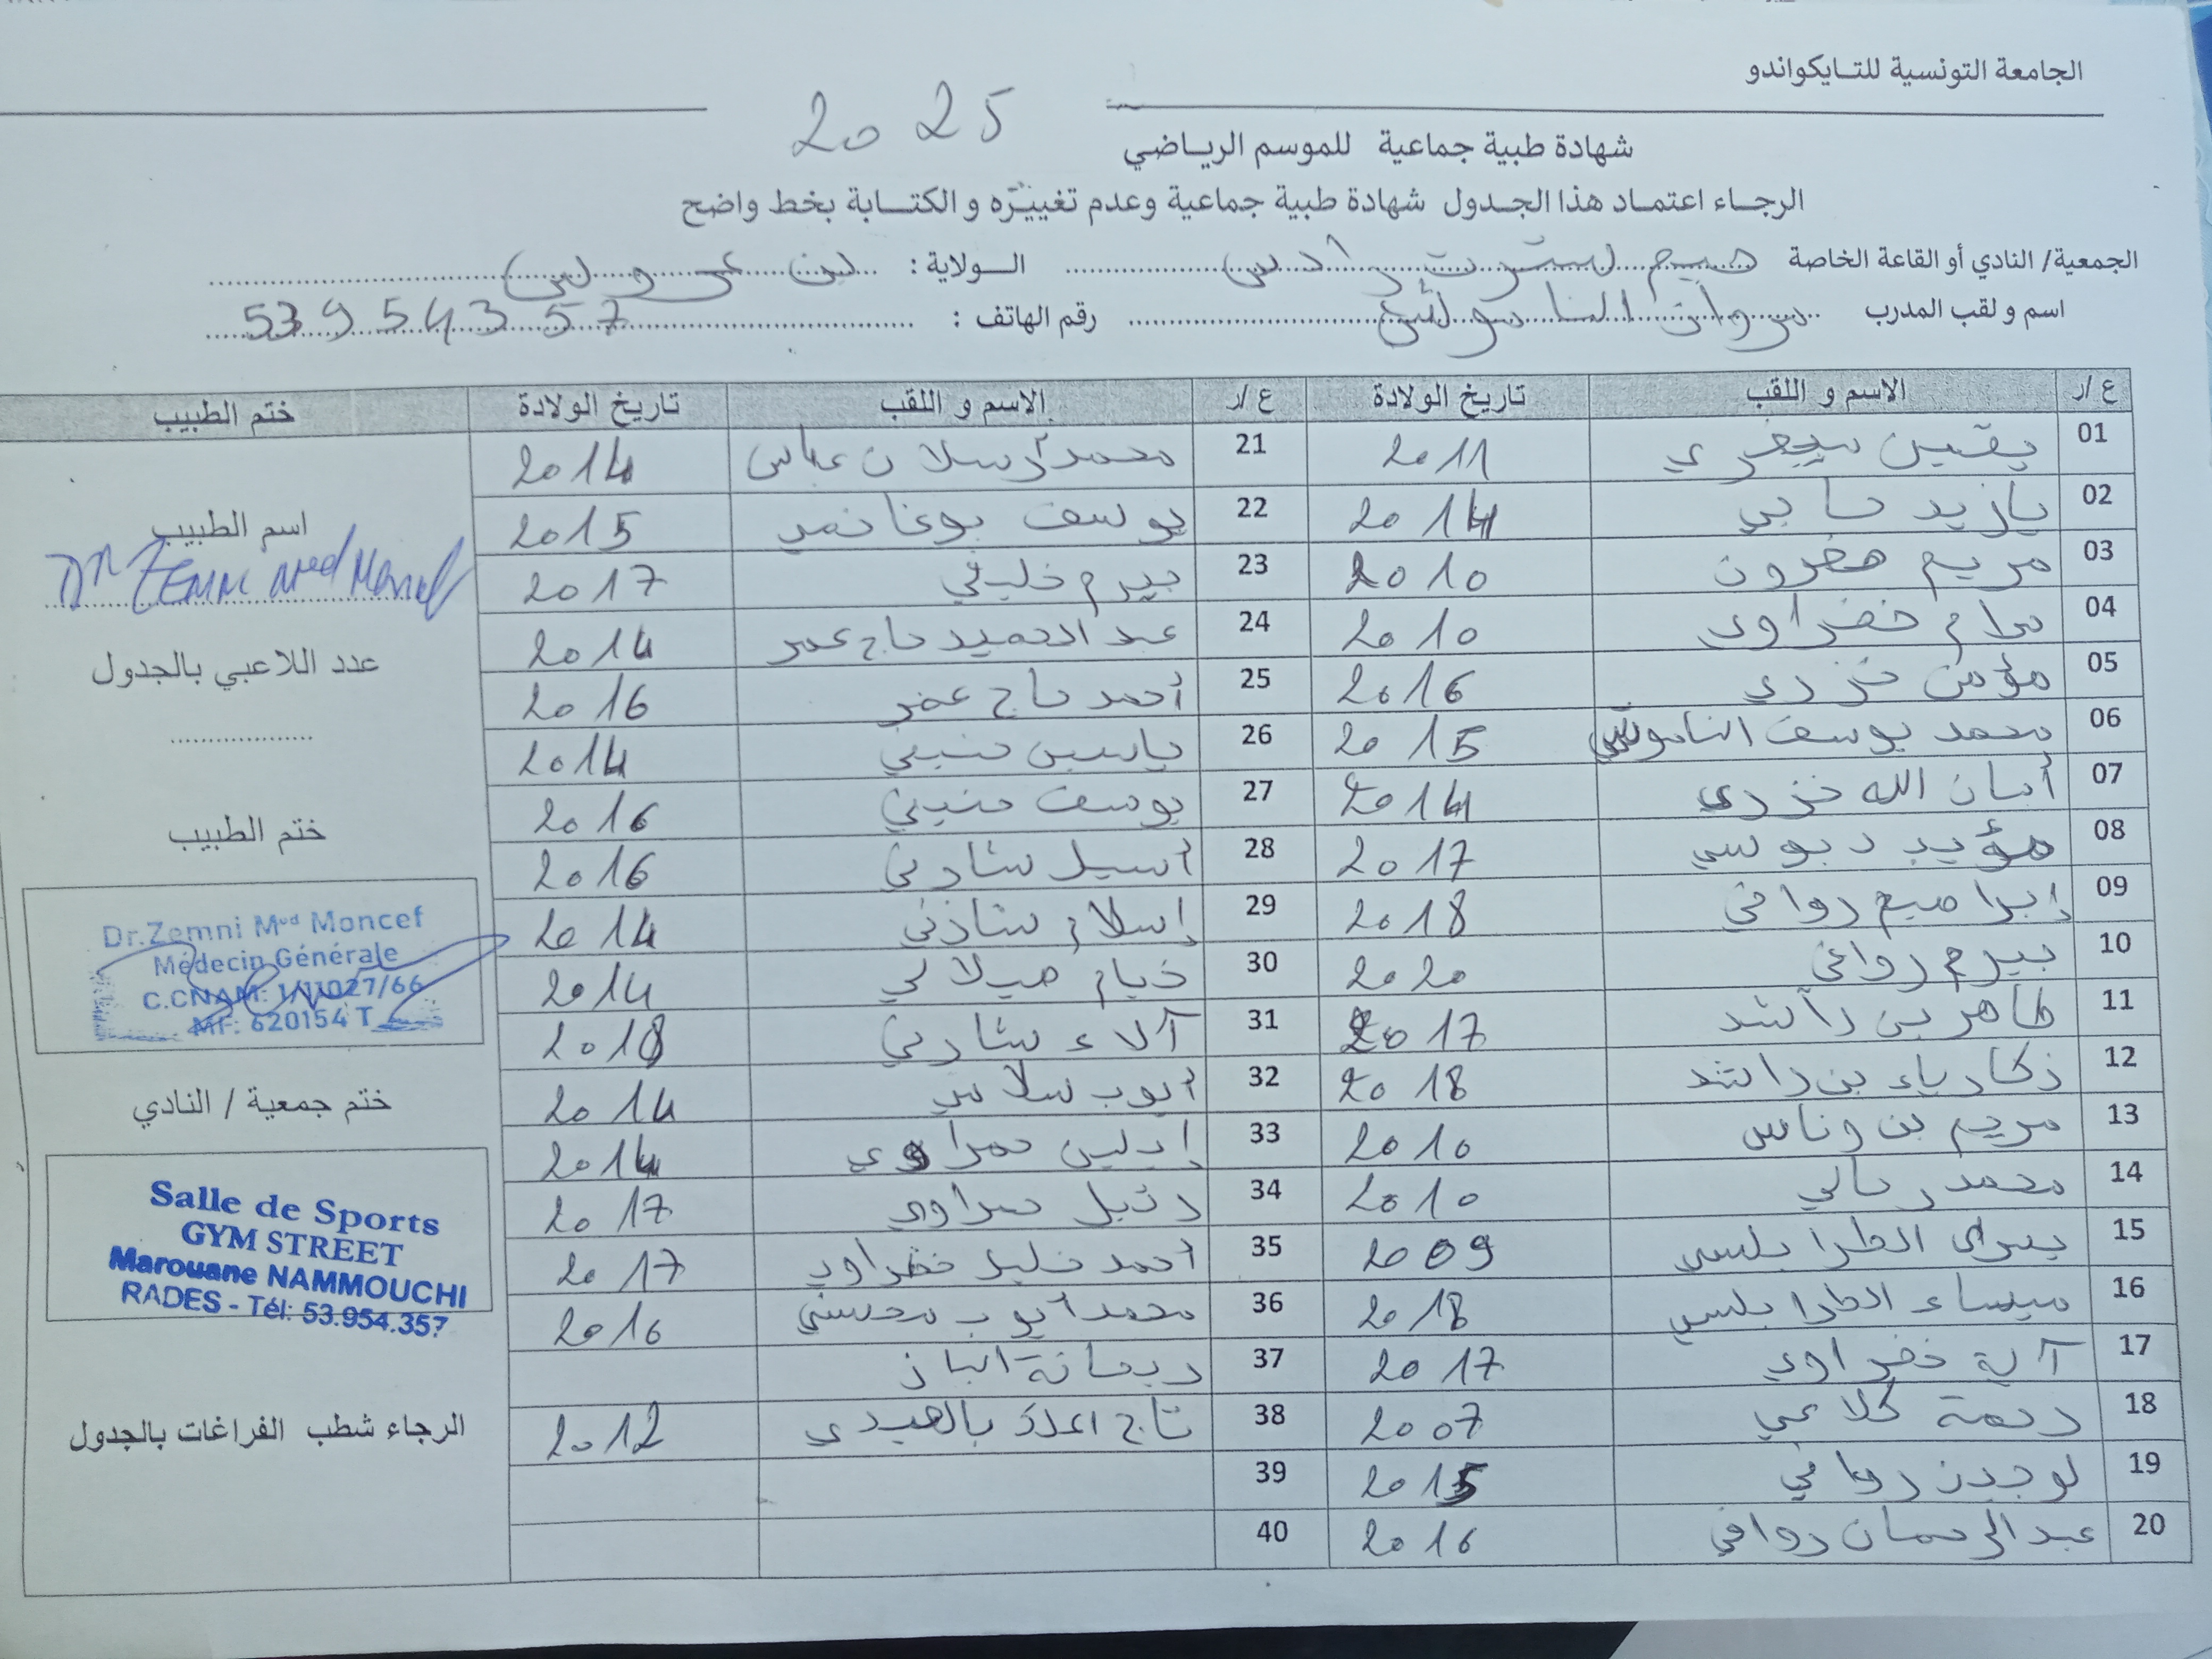 الجامعة التونسية للتايكواندو
شهادة طبية جماعية للموسم الرياضي 2025
الرجاء اعتماد هذا الجدول شهادة طبية جماعية وعدم تغييره والكتابة بخط واضح
الجمعية/ النادي أو القاعة الخاصة جيم ستريت رادس الولاية : بن عروس
اسم و لقب المدرب مروان الناموشي رقم الهاتف : 53954357
ع /ر الاسم و اللقب تاريخ الولادة ع /ر الاسم و اللقب تاريخ الولادة ختم الطبيب
01 يقين 2011 21 محمد أرسلان عباس 2014
02 يازيد حاجي 2014 22 يوسف بوغانمي 2015
03 مريم 2010 23 بيرم خليفي 2017
04 مرام خضراوي 2010 24 عبد الحميد حاج عمر 2014
05 مؤمن خزري 2016 25 أحمد حاج عمر 2016
06 محمد يوسف الناموشي 2015 26 ياسين حنيني 2014
07 أمان الله خزري 2014 27 يوسف حنيني 2016
08 مؤيد دبوسي 2017 28 أسيل شارني 2016
09 إبراهيم روافي 2018 29 إسلام شارني 2014
10 بيرم روافي 2020 30 خيام 2014
11 طاهر بن راشد 2017 31 آلاء شارني 2018
12 زكارياء بن راشد 2018 32 أيوب 2014
13 مريم بن وناس 2010 33 إيلين حمراوي 2014
14 محمد رحالي 2010 34 2017
15 الطرابلسي 2009 35 أحمد خليل خضراوي 2017
16 ميساء الطرابلسي 2018 36 محمد أيوب محسني 2016
17 آية خضراوي 2017 37 ريحانة
18 رحمة كلاعي 2007 38 تاج 2012
19 لوجين روافي 2015 39
20 عبد الرحمان روافي 2016 40
اسم الطبيب
Dr Zemni Med Moncef
عدد اللاعبي بالجدول
ختم الطبيب
Dr.Zemni Med Moncef
Médecin Générale
C.CNAM: 1/11027/66
MF: 620154 T
ختم جمعية / النادي
Salle de Sports
GYM STREET
Marouane NAMMOUCHI
RADES - Tél: 53.954.357
الرجاء شطب الفراغات بالجدول